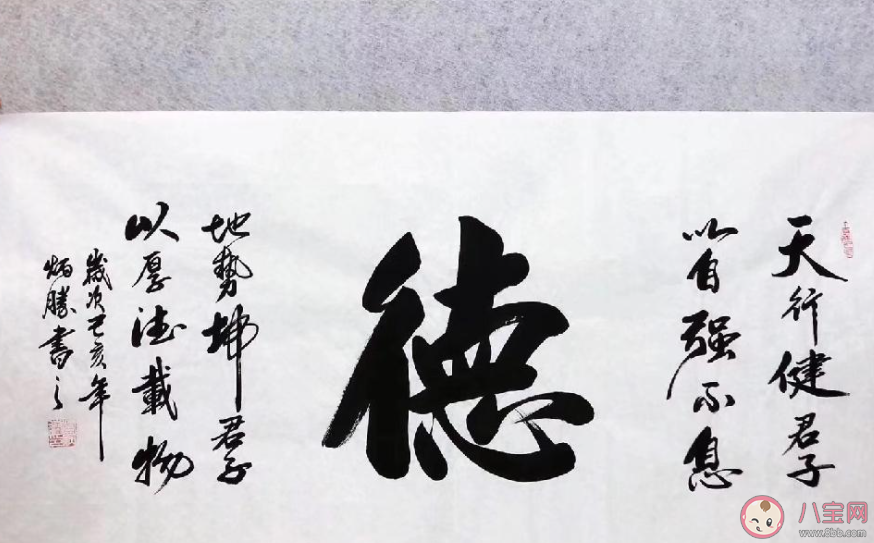 天行健君子
以自强不息
德
地势坤君子
以厚德载物
歲次己亥年
炳勝書之
八宝网
www.8bb.com